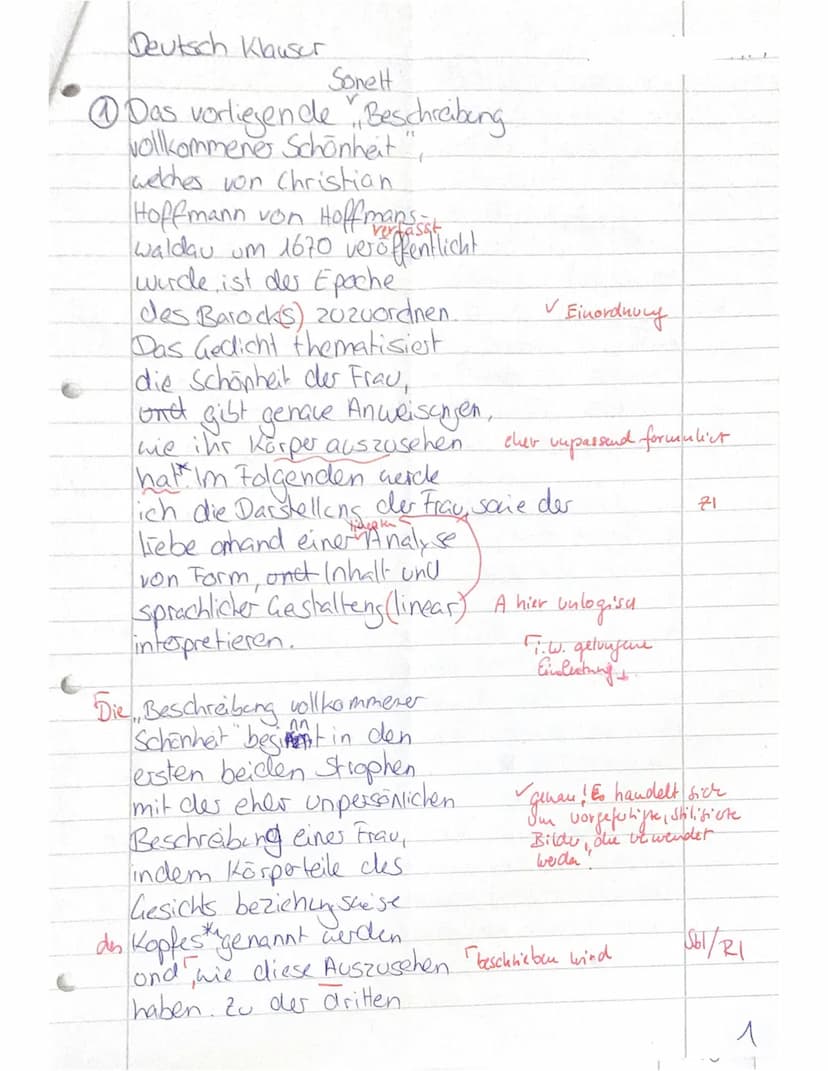 Deutsch Klausur
Sonett
① Das vorliegende „Beschreibung
vollkommener Schönheit",
welches von Christian
Hoffmann von Hoffmans-
verfasst
waldau um 1670 veröffentlicht
wurde, ist der Epoche
des Barock(s) zuzuordnen. ✓ Einordnung
Das Gedicht thematisiert
die Schönheit der Frau,
und gibt genaue Anweisungen,
wie ihr Körper auszusehen eher unpassend formuliert
hat.* Im Folgenden werde
ich die Darstellung der Frau, sowie der Z1
liebe anhand einer Analyse
von Form, und Inhalt und
sprachlicher Gestaltung (linear) A hier unlogisch
interpretieren. i.w. gelungene
Einleitung
Die „Beschreibung vollkommener
Schönheit" beginnt in den
ersten beiden Strophen
mit der eher unpersönlichen ✓ genau! Es handelt sich
um vorgefertigte, stilisierte
Beschreibung einer Frau, Bilder, die verwendet
indem Körperteile des werden.
Gesichts beziehungsweise
des Kopfes* genannt werden Sb1/R1
und, wie diese Auszusehen beschrieben wird
haben. Zu der dritten
1